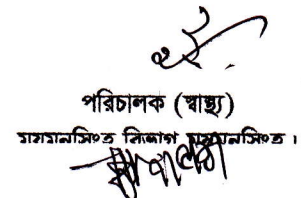 পরিচালক (স্বাস্থ্য)
ময়মনসিংহ বিভাগ ময়মনসিংহ।